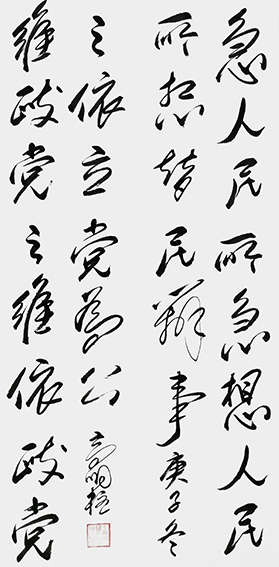 急人民所急想人民
所想替民辦事庚子冬
之依立党為公
維政党之維依政党